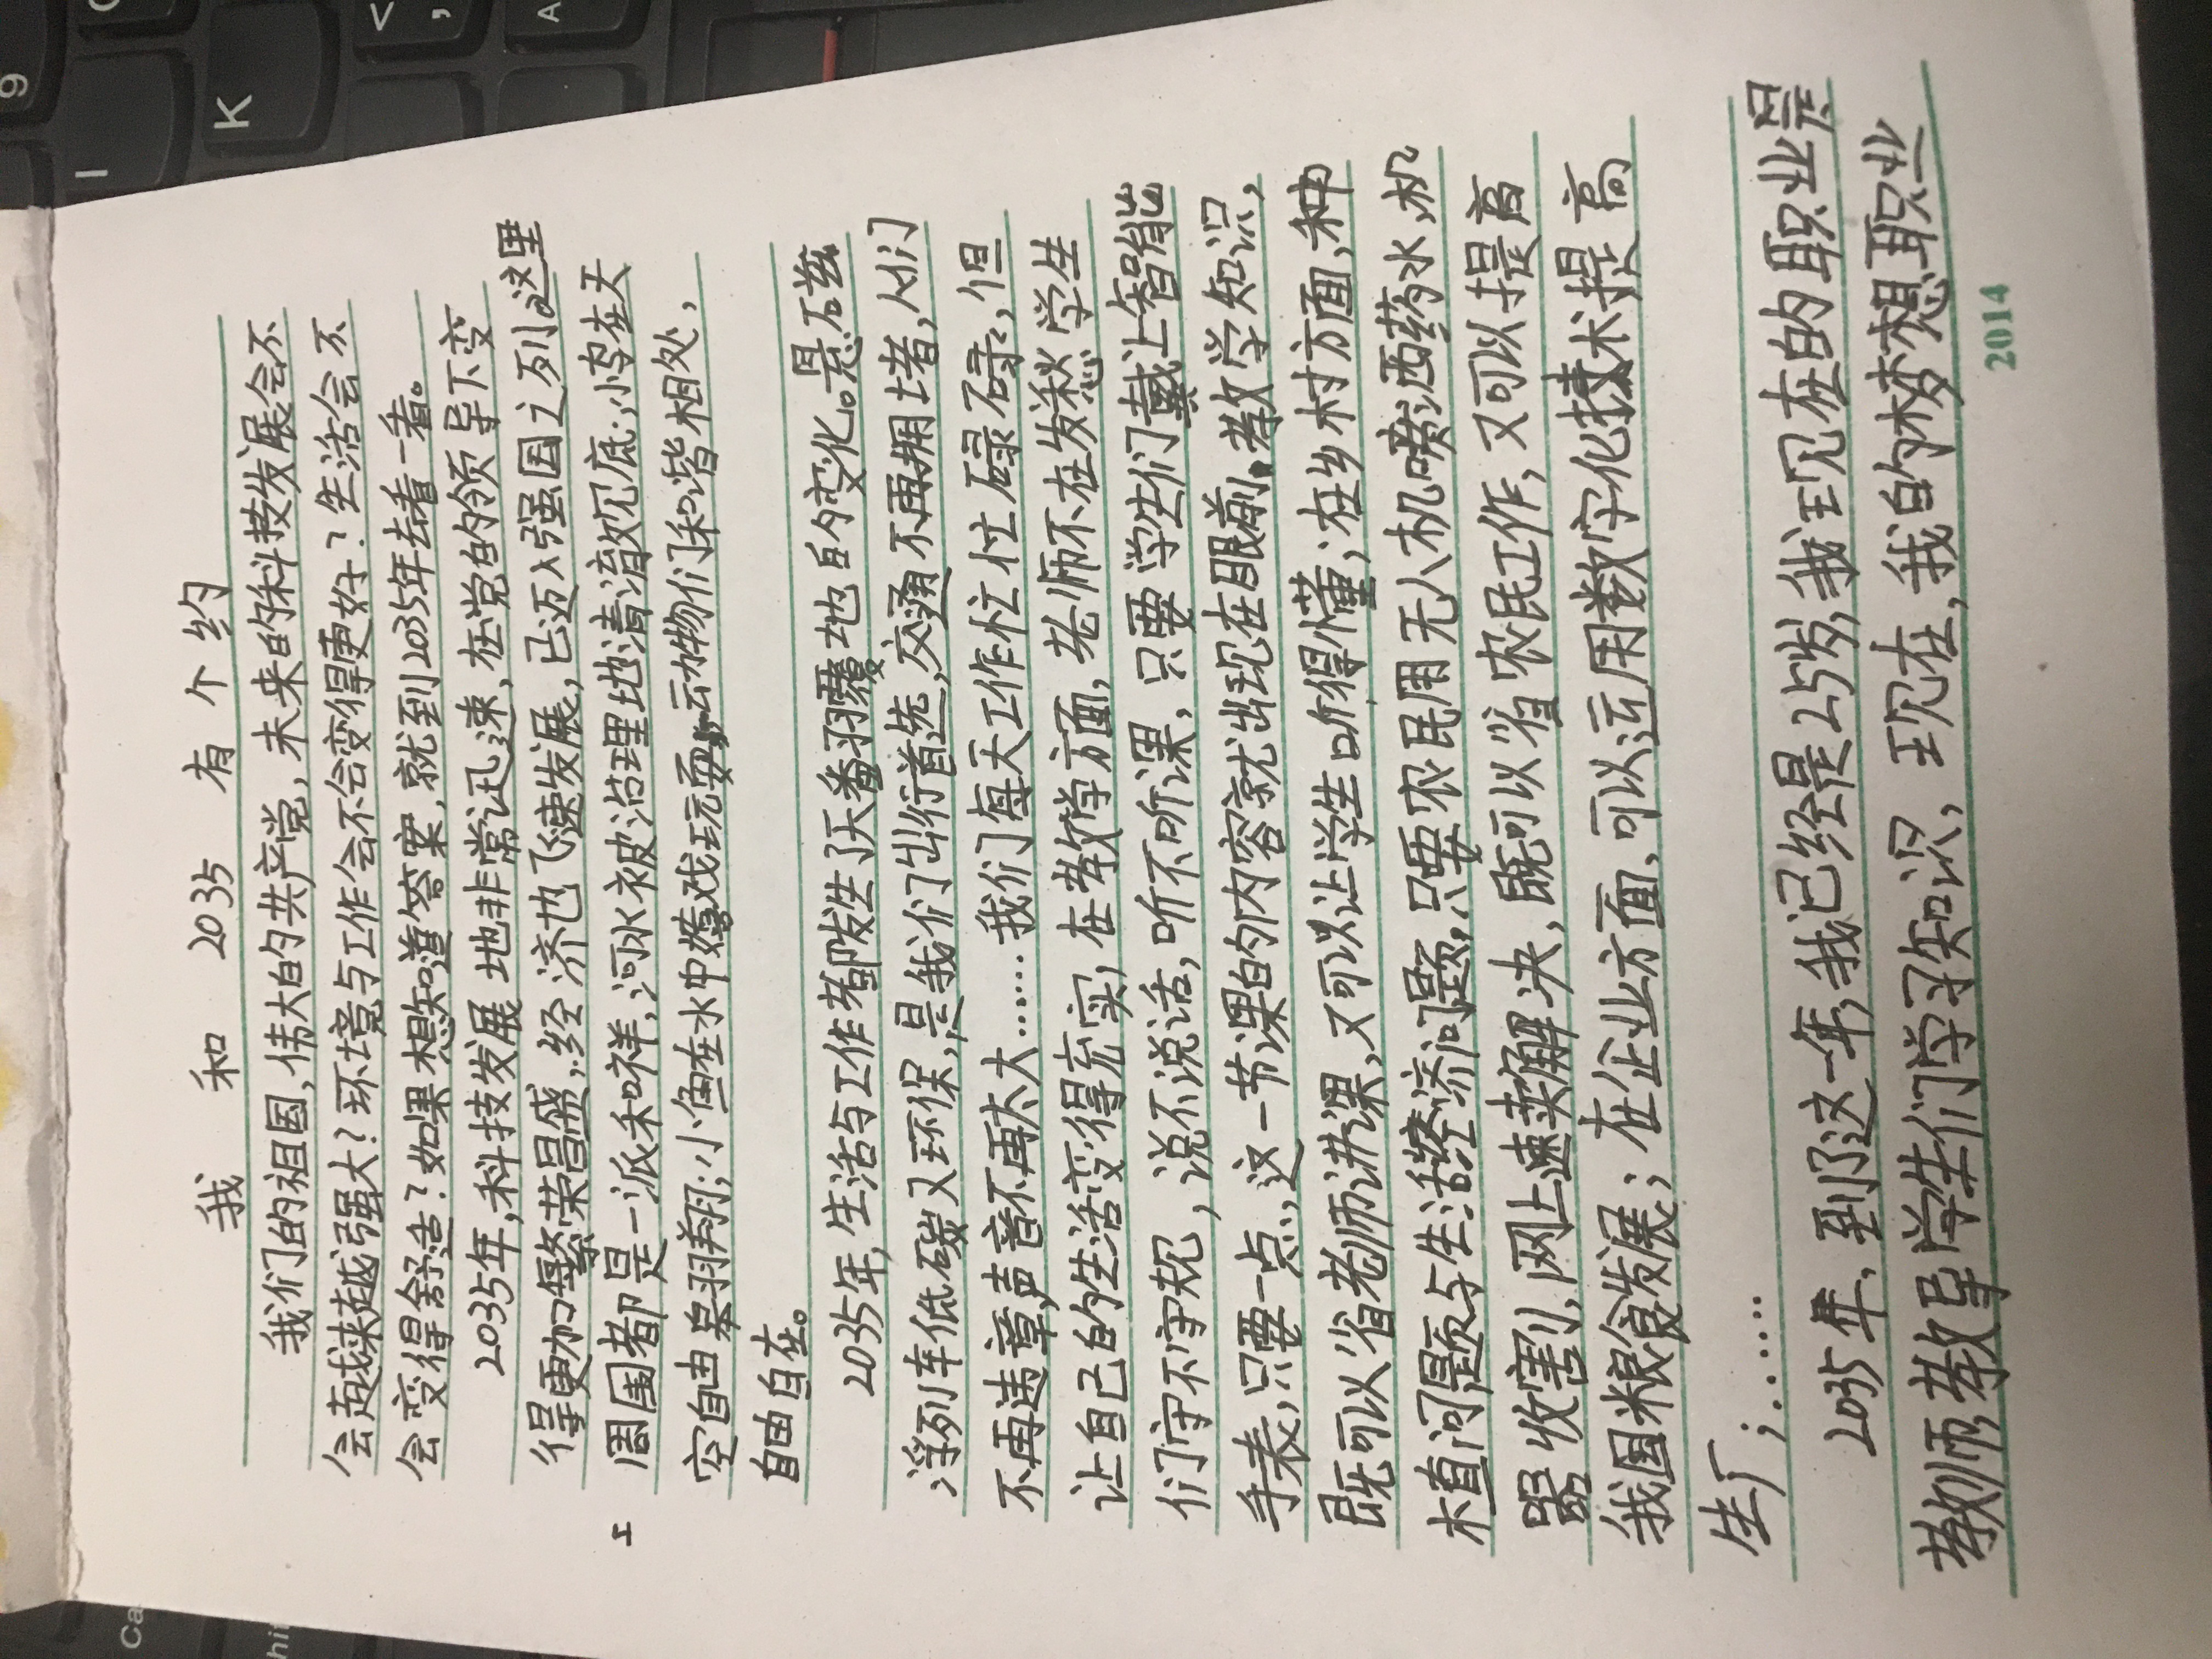 我 和 2035 有 个 约
我们的祖国,伟大的共产党,未来的科技发展会不
会越来越强大?环境与工作会不会变得更好?生活会不
会变得舒适?如果想知道答案,就到2035年去看一看。
2035年,科技发展地非常迅速,在党的领导下变
得更加繁荣昌盛,经济也飞速发展,已迈入强国之列。这里
周围都是一派和祥,河水被治理地清澈见底;小鸟在天
空自由翱翔;小鱼在水中嬉戏玩耍;动物们和谐相处,
自由自在。
2035年,生活与工作都发生了天翻地覆的变化。悬磁
浮列车低碳又环保,是我们出行首选,交通不再拥堵,人们
不再违章,声音不再太大……我们每天工作忙忙碌碌,但
让自己的生活变得充实,在教学方面,老师不在发愁学生
们守不守规,说不说话,听不听课,只要学生们戴上智能
手表,只要一点,这一节课的内容就出现在眼前,教学知识,
既可以省老师讲课,又可以让学生听得懂;在乡村方面,种
植问题与生活经济问题,只要农民用无人机喷洒药水,机
器收割,网上速卖解决,既可以省农民工作,又可以提高
我国粮食发展;在企业方面,可以运用数字化技术提高
生厂;……
2035年,到了这一年,我已经是25岁,我现在的职业是
教师,教导学生们学习知识,现在,我的梦想职业
2014
9
I
K
<
,
A